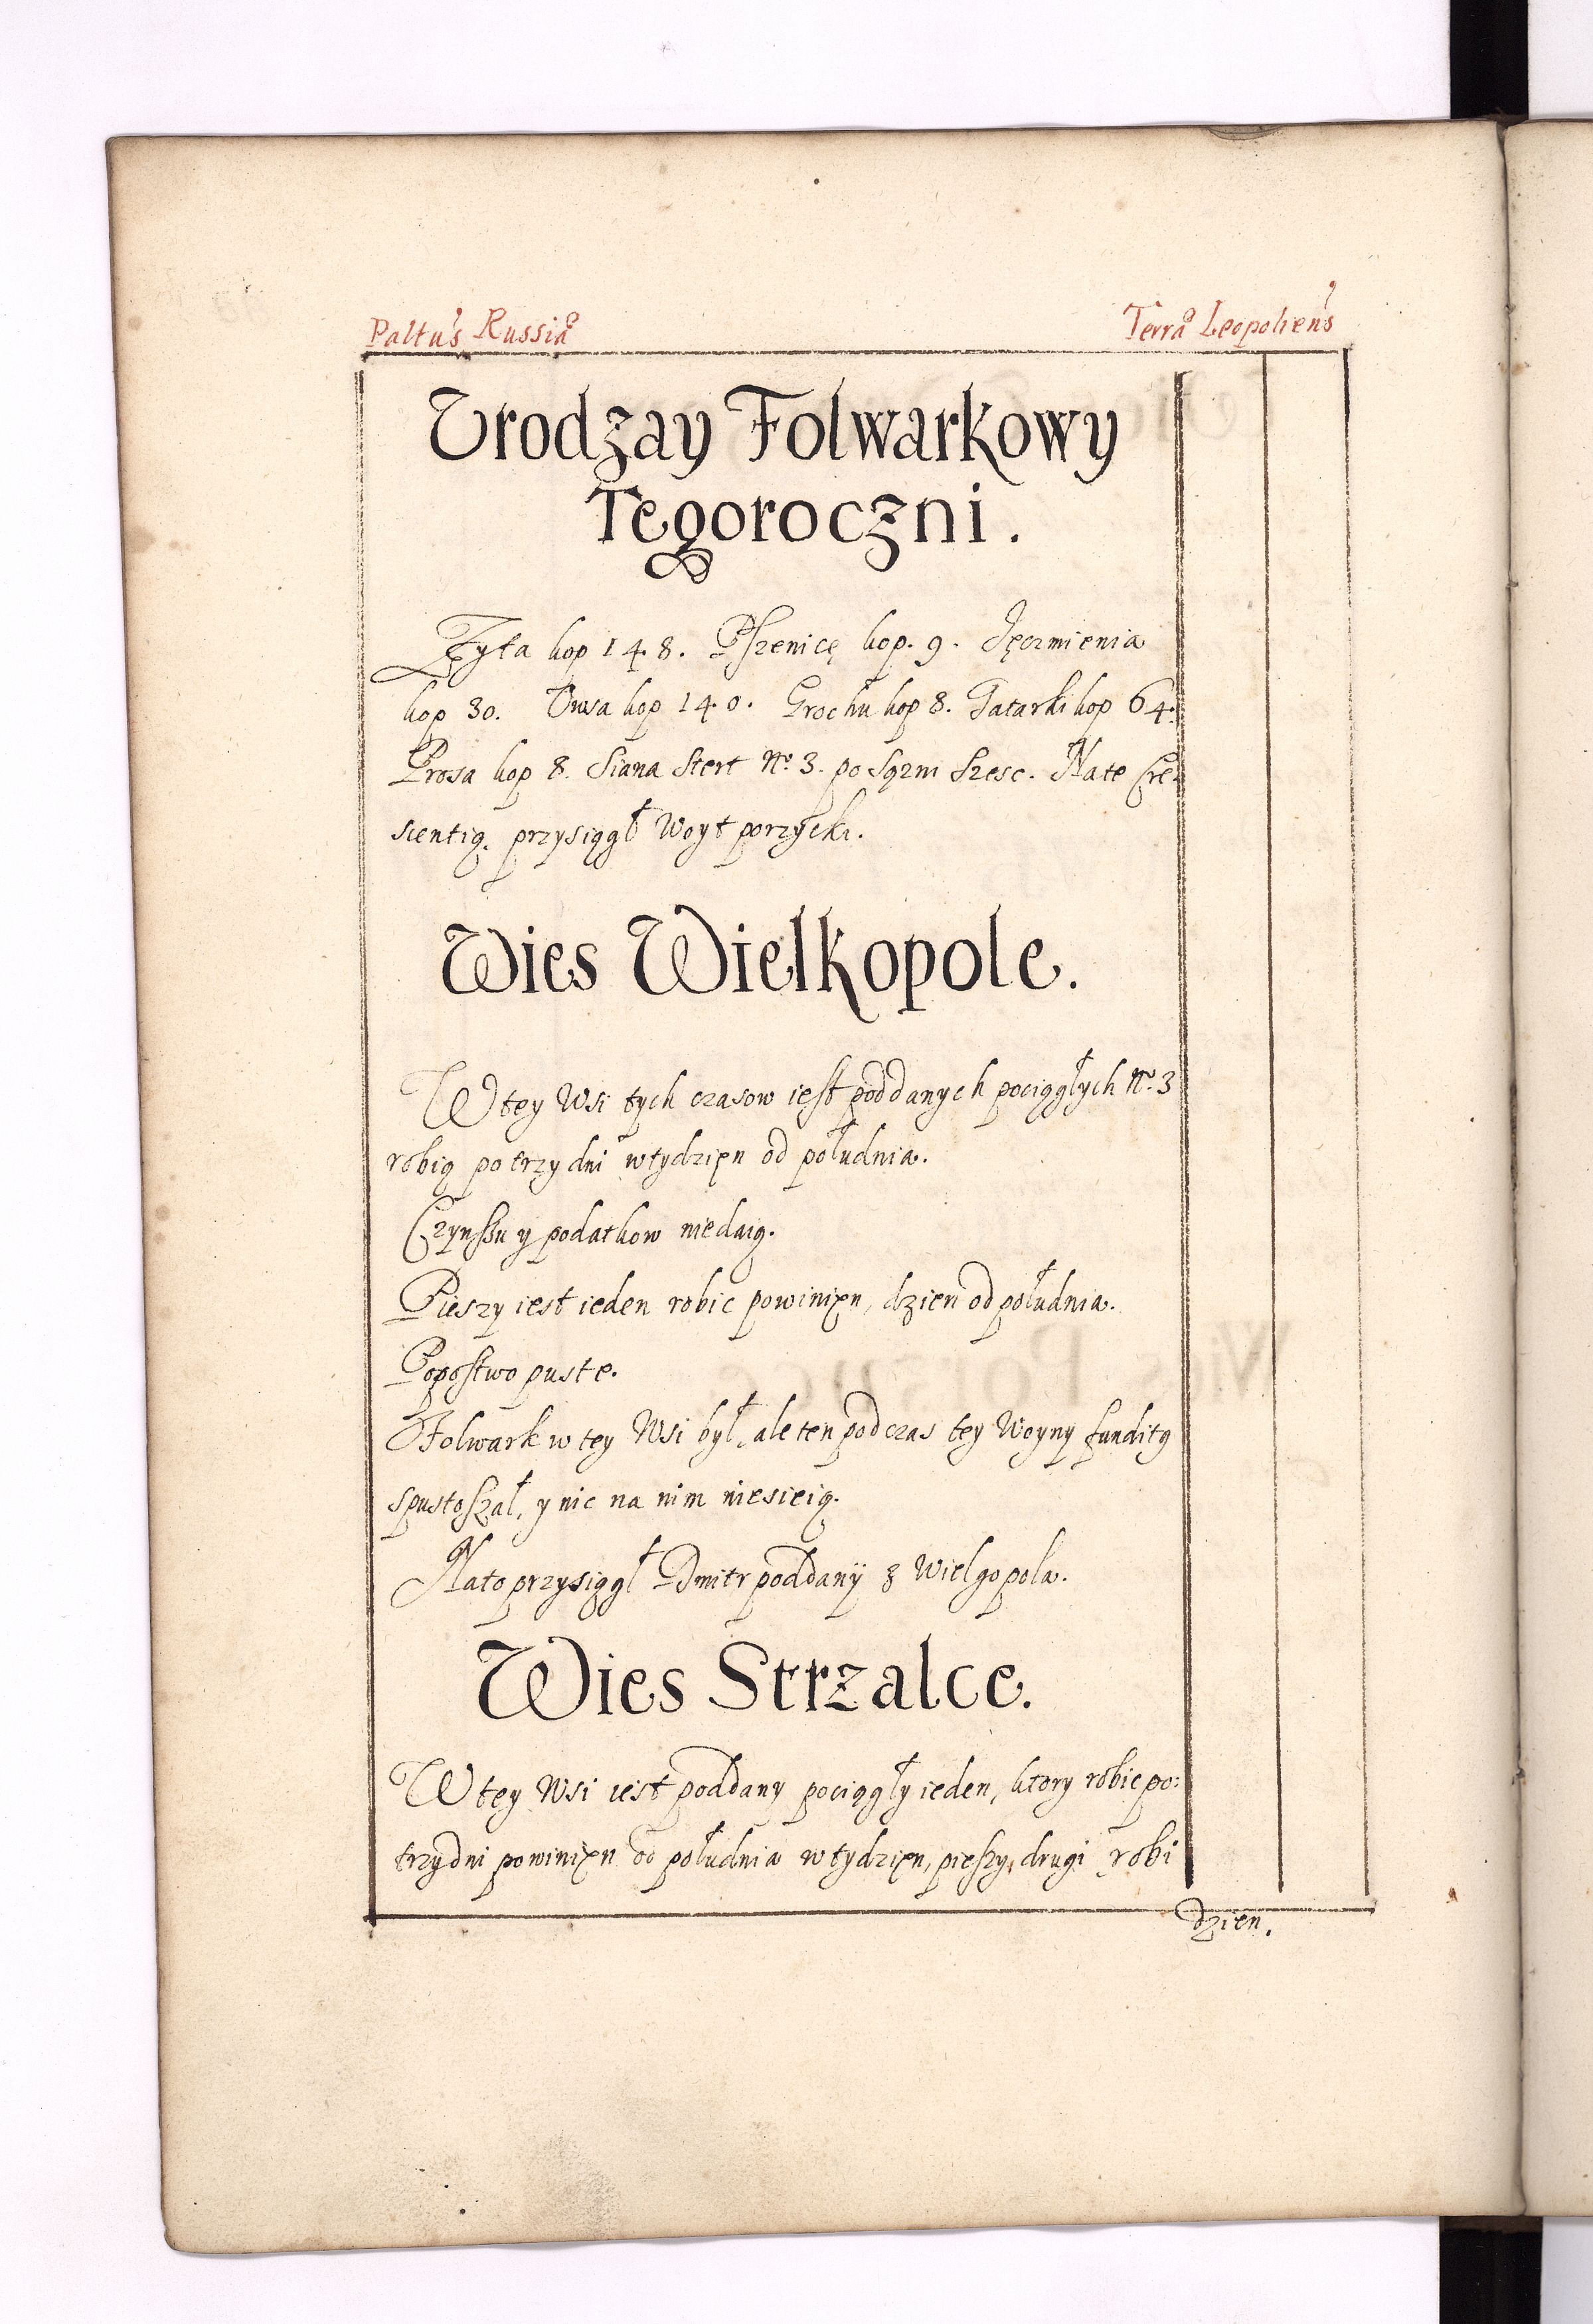 Paltus Russiæ
Terræ Leopoliens
Vrodzay Folwarkowy
Tegoroczni.
Zyta kop 148. Pszenicę kop. 9. Jęczmienia
kop 30. Owsa kop 140. Grochu kop 8. Tatarki kop 64.
Prosa kop 8. Siana Stert No. 3. po Sązni Szesc. Nate Cre-
scentią. przysiągł Woyt porzycki.
Wies Wielkopole.
W tey Wsi tych czasow iest poddanych pociągłych No. 3
robią po trzy dni wtydzięn od południa.
Czynszu y podatkow niedaią.
Pieszy iest ieden robic powinięn, dzien od południa.
Popostwo puste.
Folwark w tey Wsi był, ale ten podczas tey Woyny funditq
spustoszał, y nic na nim niesieią.
Nato przysiągł Dmitr poddanÿ z Wielgopola.
Wies Strzalce.
W tey Wsi iest poddany pociągły ieden, ktory robic po:
trzy dni powinięn od południa wtydzięn, pieszy, drugi robi
dzien.